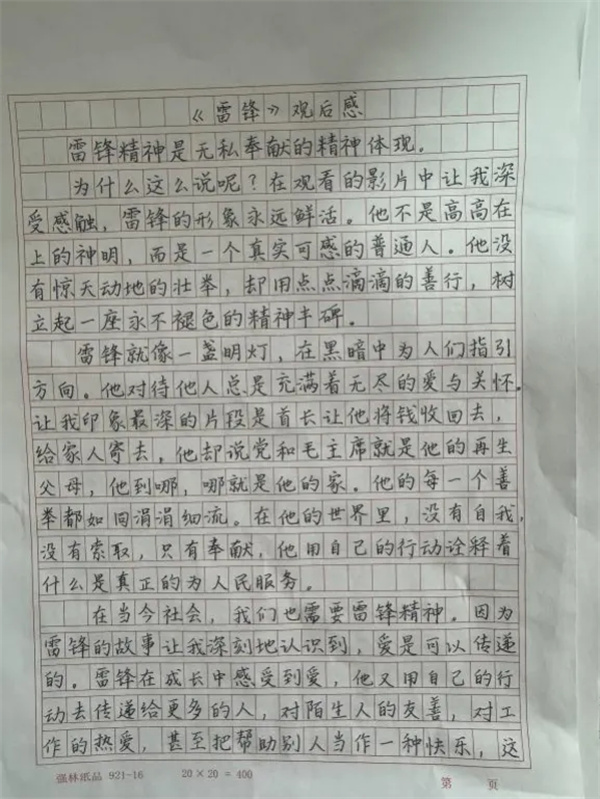 《雷锋》观后感
雷锋精神是无私奉献的精神体现。
为什么这么说呢？在观看的影片中让我深
受感触，雷锋的形象永远鲜活。他不是高高在
上的神明，而是一个真实可感的普通人。他没
有惊天动地的壮举，却用点点滴滴的善行，树
立起一座永不褪色的精神丰碑。
雷锋就像一盏明灯，在黑暗中为人们指引
方向。他对待他人总是充满着无尽的爱与关怀。
让我印象最深的片段是首长让他将钱收回去，
给家人寄去，他却说党和毛主席就是他的再生
父母，他到哪，哪就是他的家。他的每一个善
举都如同涓涓细流。在他的世界里，没有自我，
没有索取，只有奉献，他用自己的行动诠释着
什么是真正的为人民服务。
在当今社会，我们也需要雷锋精神。因为
雷锋的故事让我深刻地认识到，爱是可以传递
的。雷锋在成长中感受到爱，他又用自己的行
动去传递给更多的人，对陌生人的友善，对工
作的热爱，甚至把帮助别人当作一种快乐，这
强林纸品 921-16 20×20=400 第 页